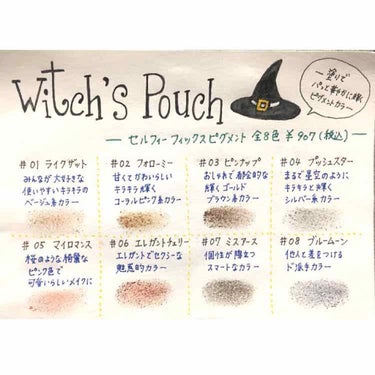 Witch's Pouch
一塗りで
パッと華やかに輝く
ピグメントカラー
セルフィーフィックスピグメント 全8色 ¥907(税込)
#01 ライクザット
みんなが大好きな
使いやすいキラキラの
ベージュ系カラー
#02 フォローミー
甘くてかわいらしい
キラキラ輝く
コーラルピンク系カラー
#03 ピンナップ
おしゃれで都会的な
輝くゴールド
ブラウン系カラー
#04 プッシュスター
まるで星空のように
キラキラと輝く
シルバー系カラー
#05 マイロマンス
桜のような綺麗な
ピンク色で
可愛いらしいメイクに
#06 エレガントチェリー
エレガントでセクシーな
魅惑的カラー
#07 ミスアース
個性が際立つ
スマートなカラー
#08 ブルームーン
他人と差をつける
ド派手カラー